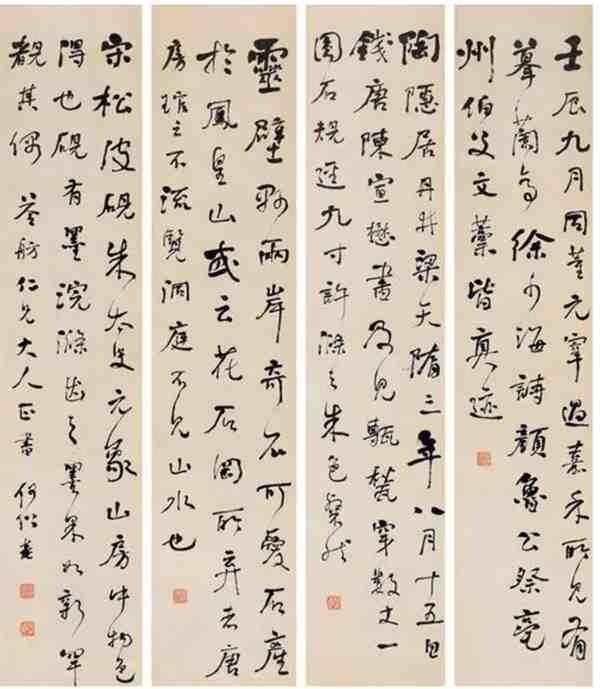 壬辰九月同董元宰過嘉禾所見有
摹蘭亭徐海詩顏魯公祭亳
州伯父文藁皆真迹
陶隱居丹井梁天隋三年八月十五日
錢唐陳宣懋書及見甃穿數丈一
圓石規逕九寸許滌之朱色粲然
靈壁縣兩岸奇石可愛石產
於鳳皇山或云花石綱所棄去唐
房琯云不流覽洞庭不見山水也
宋松皮硯朱太史元象山房中物色
得也硯有墨浣滌之墨果如新罕
覩其偶 苓舫仁兄大人正書 何紹基